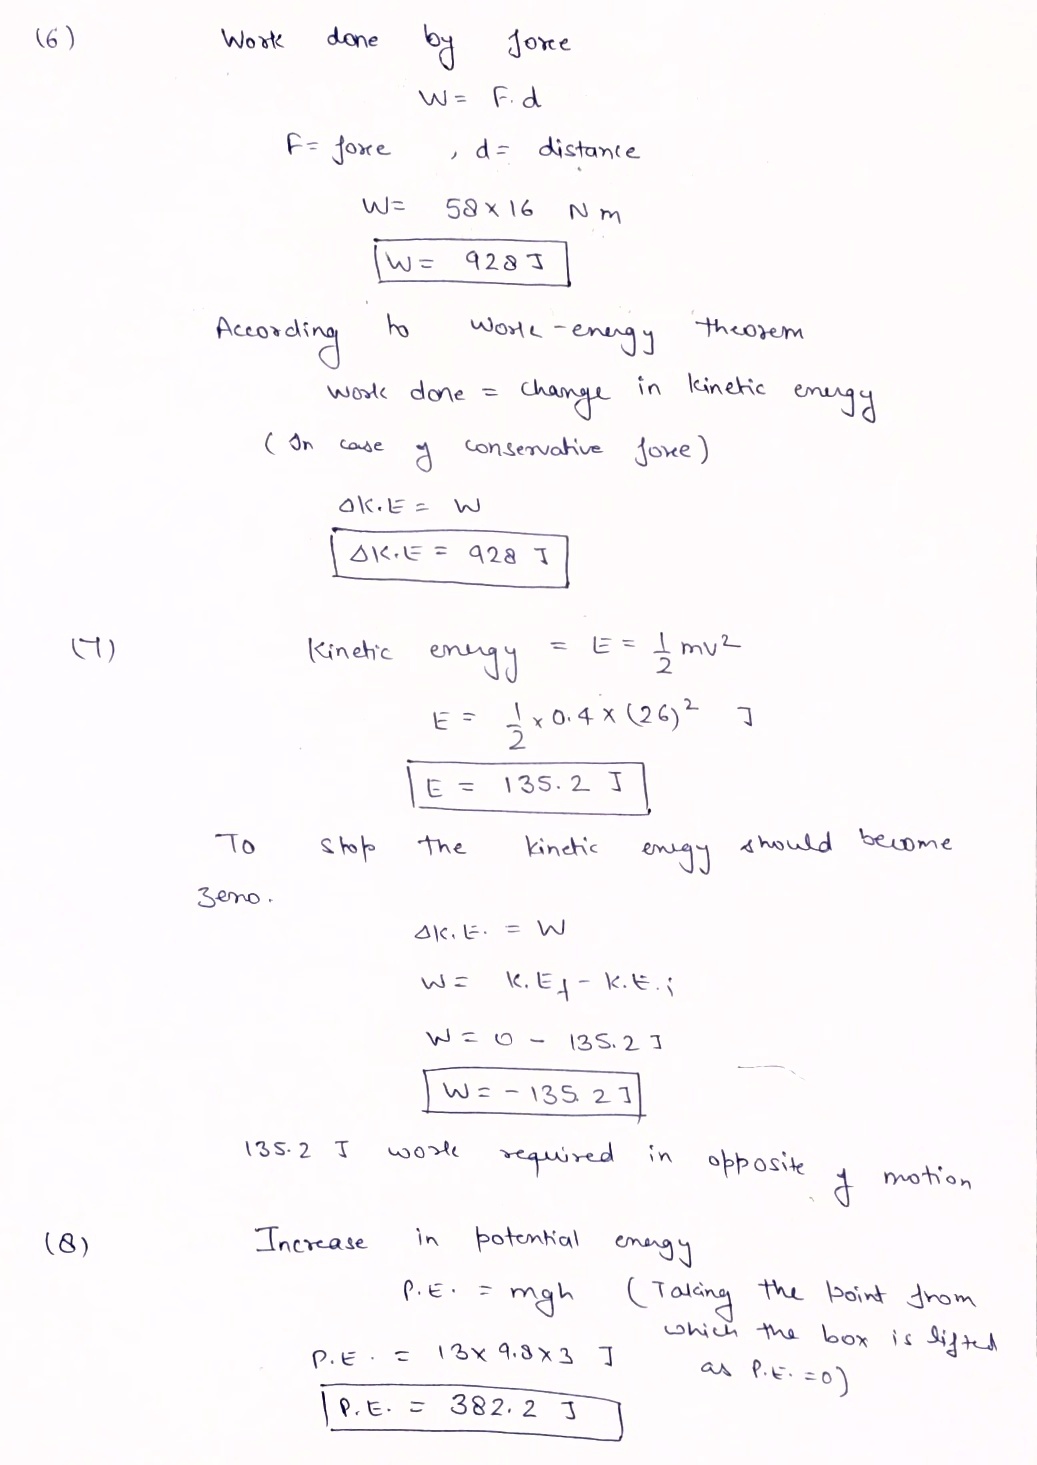 (6) Work done by force
W = F.d
F = force , d = distance
W = 58 x 16 Nm
W = 928 J
According to work-energy theorem
work done = change in kinetic energy
(In case of conservative force)
ΔK.E = W
ΔK.E = 928 J
(7) Kinetic energy = E = 1/2 mv²
E = 1/2 x 0.4 x (26)² J
E = 135.2 J
To stop the kinetic energy should become
zero.
ΔK.E. = W
W = K.Ef - K.E.i
W = 0 - 135.2 J
W = -135.2 J
135.2 J work required in opposite of motion
(8) Increase in potential energy
P.E. = mgh (Taking the point from
which the box is lifted
P.E. = 13 x 9.8 x 3 J
as P.E. = 0)
P.E. = 382.2 J